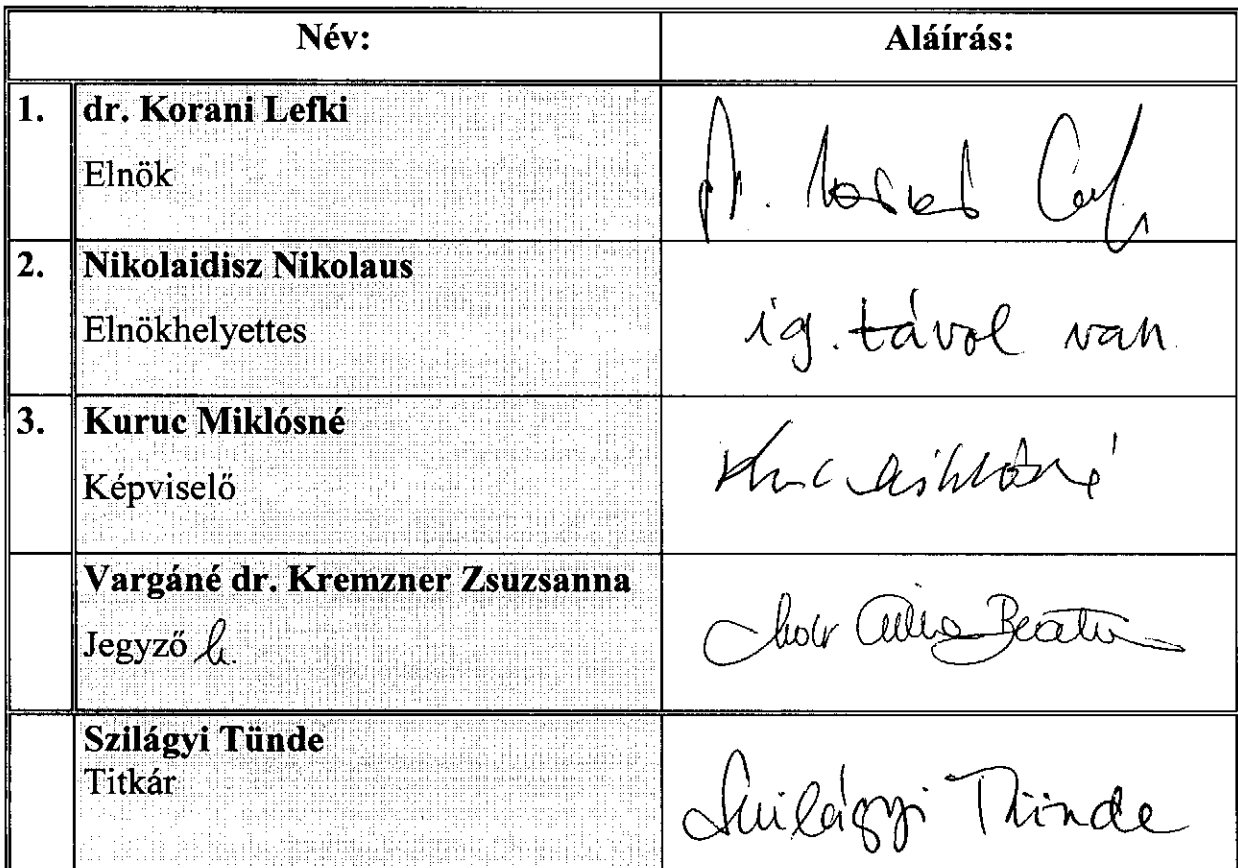 Név: Aláírás:
1. dr. Korani Lefki
Elnök
2. Nikolaidisz Nikolaus
Elnökhelyettes
ig. távol van
3. Kuruc Miklósné
Képviselő
Vargáné dr. Kremzner Zsuzsanna
Jegyző h.
Beáta
Szilágyi Tünde
Titkár
Szilágyi Tünde